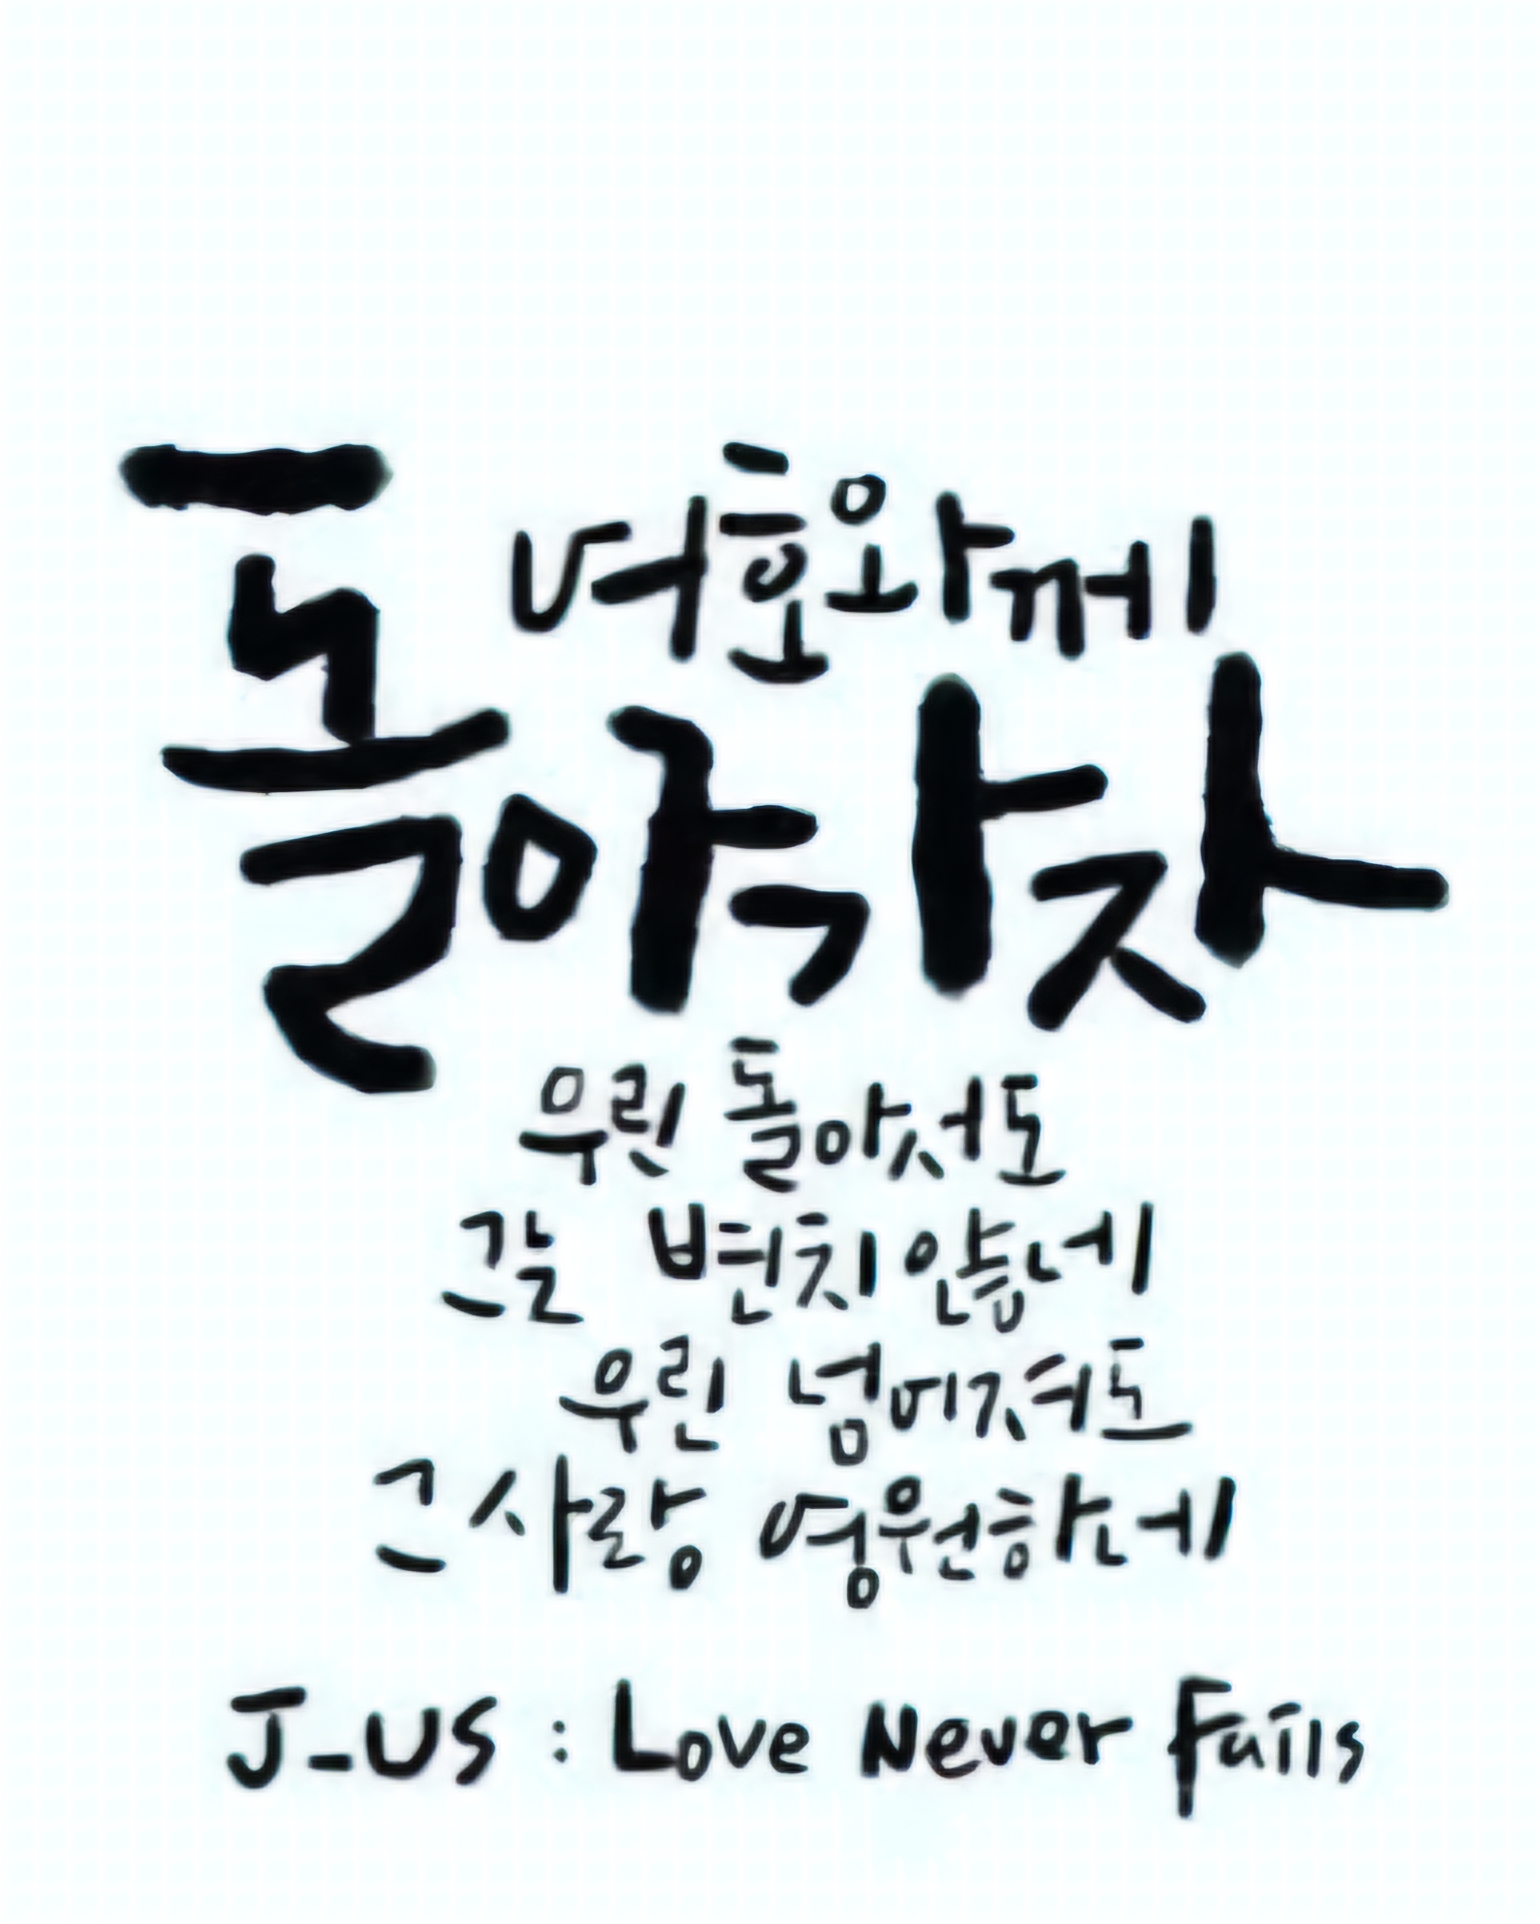 여호와께
돌아가자
우린 돌아서도
그는 변치 않네
우린 넘어져도
그 사랑 영원하네
J-US : Love Never Fails